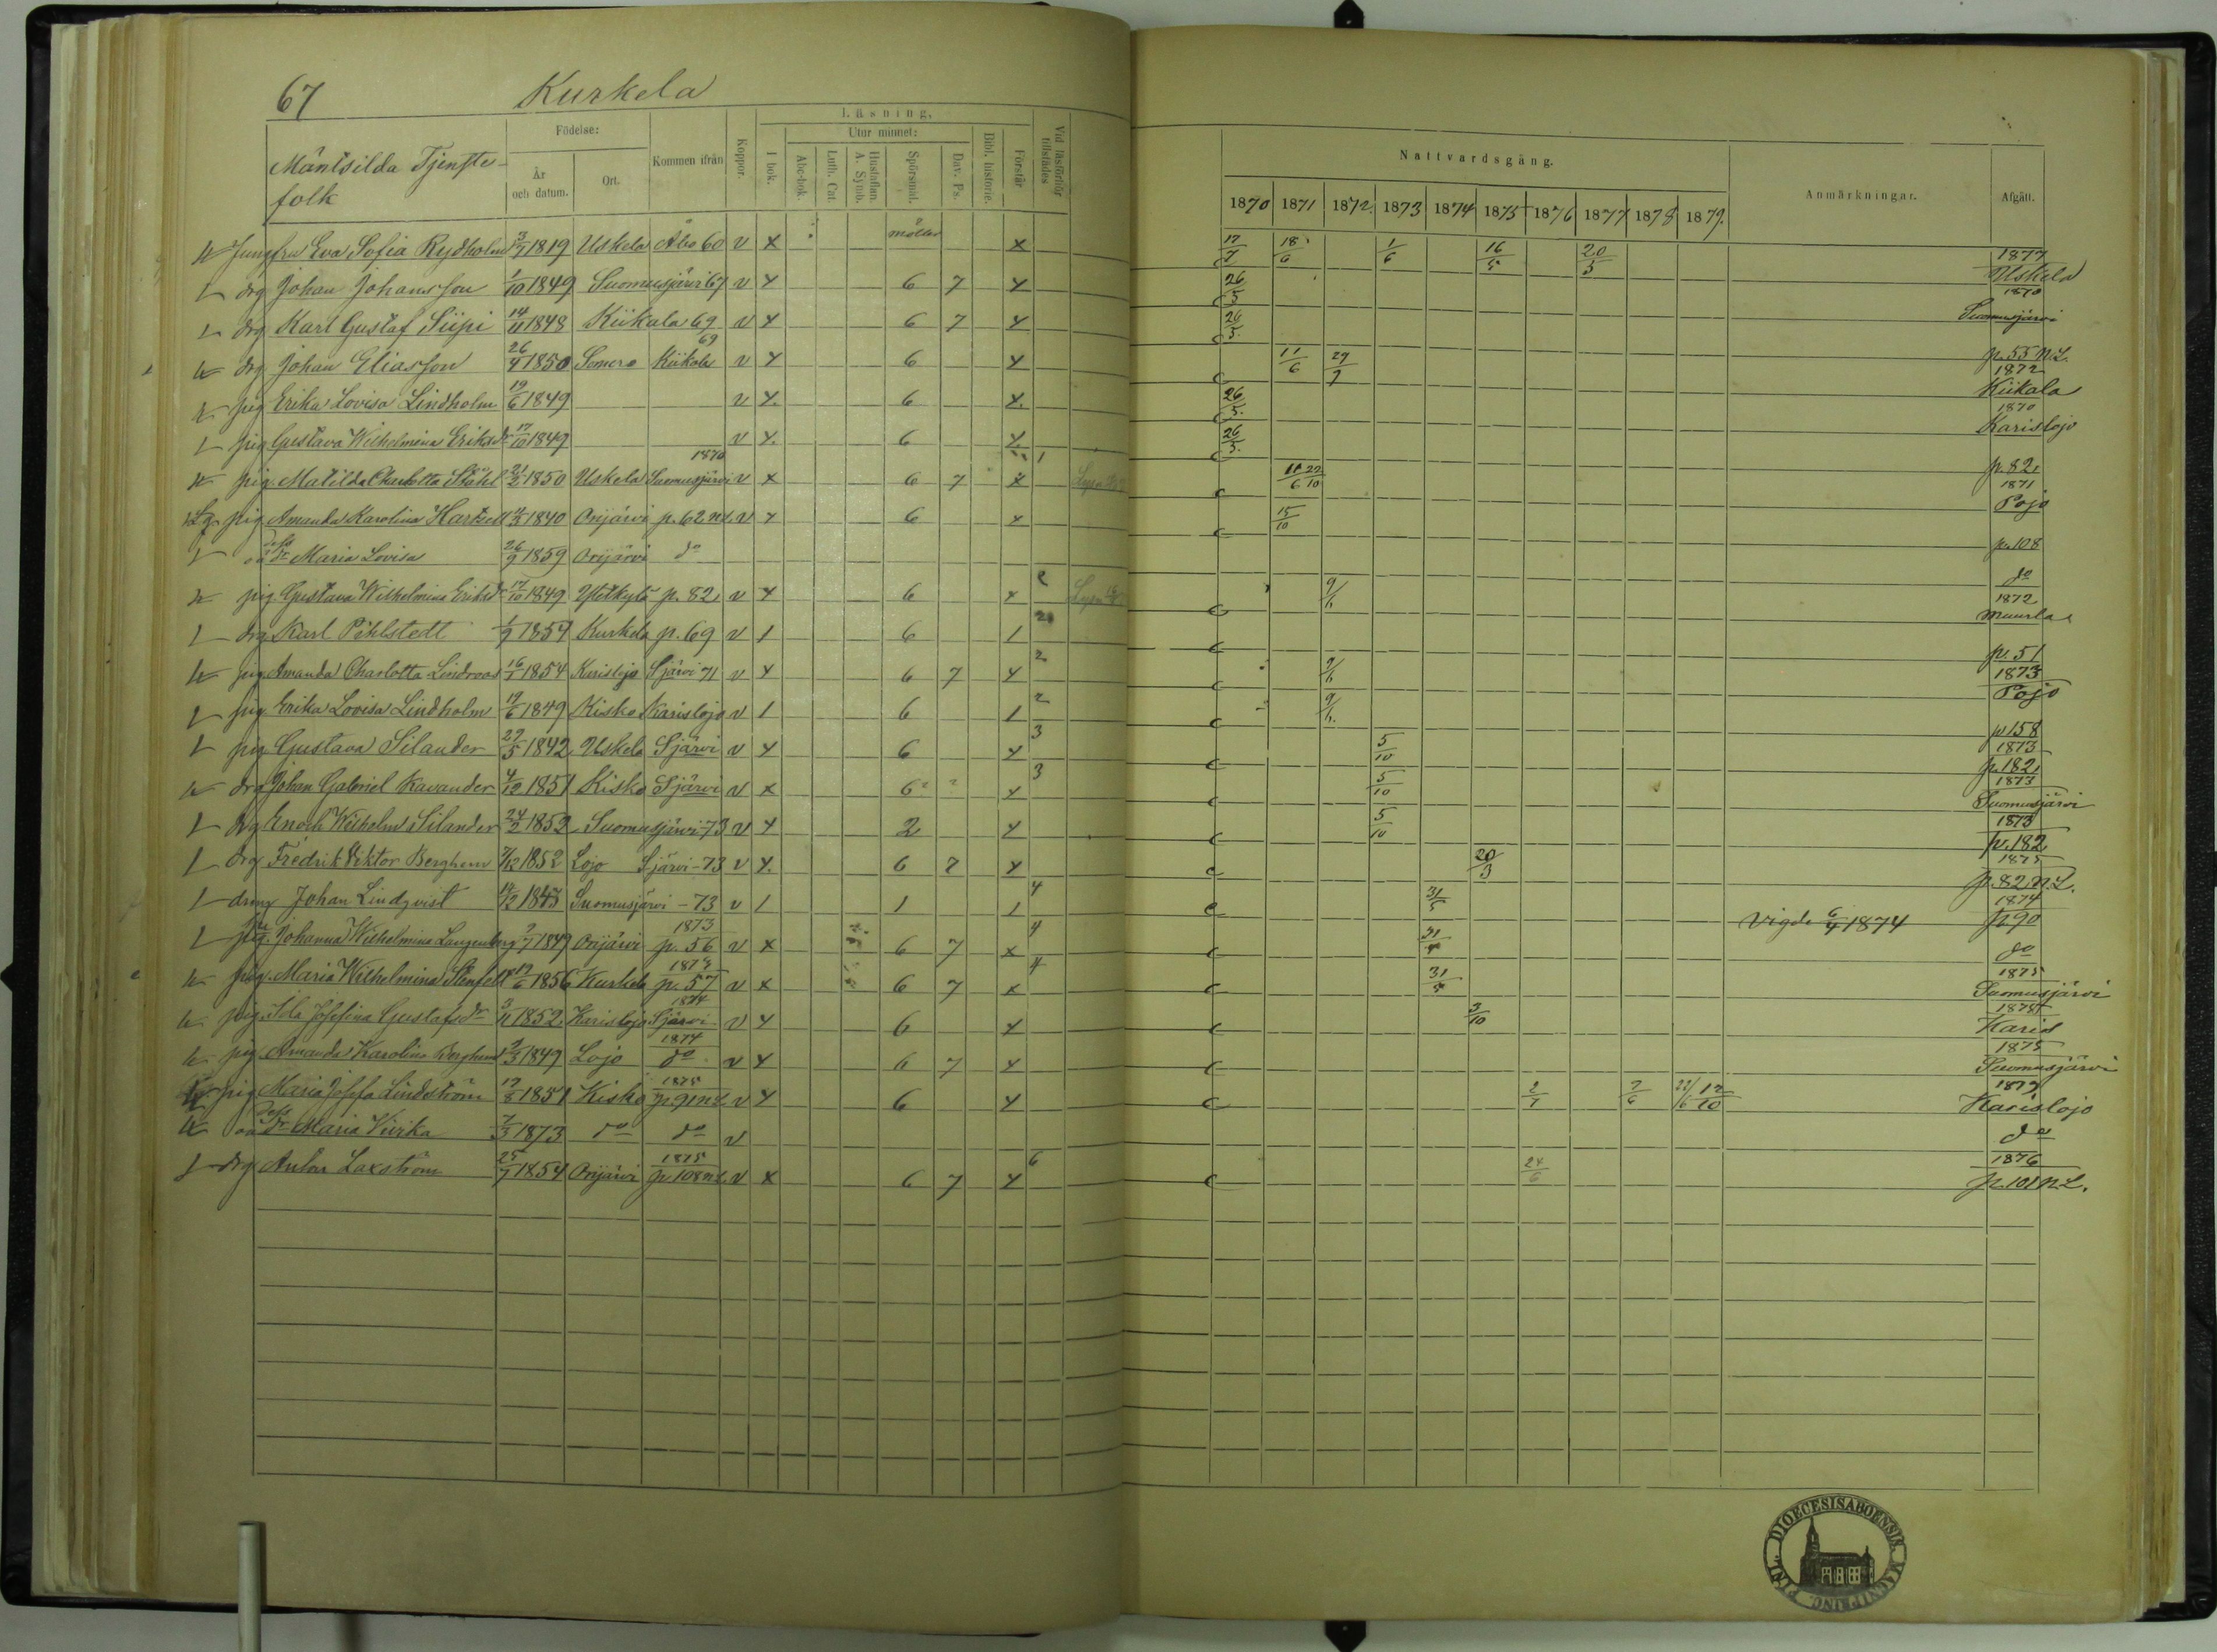 67 Kurkela
Mäntsilda Tjenste-
folk
Födelse:
År och datum.
Ort.
Kommen ifrån
Koppor.
Läsning,
I bok.
Utur minnet:
Abc-bok.
Luth. Cat.
Hustaflan. A. Symb.
Spörsmål.
Dav. Ps.
Bibl. historie.
Förstår
Vid läsförhör tillstädes
Nattvardsgång.
1870 1871 1872 1873 1874 1875 1876 1877 1878 1879
Anmärkningar.
Afgått.
Jungfru Eva Sofia Rydholm 3/7 1819 Uskela Åbo 60 v x x 17/7 18/6 1/6 16/5 20/5 1877 Uskela
drg Johan Johansson 1/10 1849 Suomusjärvi 67 v x 6 7 x 26/5 1870 Suomusjärvi
drg Karl Gustaf Siipi 14/11 1848 Kiikala 69 v x 6 7 x 26/5 p. 55 N.L.
drg Johan Eliasson 26/4 1850 Somero Kiikala 69 v x 6 x 11/6 29/7 1872 Kiikala
pig Erika Lovisa Lindholm 19/6 1849 v x 6 x 26/5 1870 Karislojo
pig Gustava Wilhelmina Eriksdr 17/10 1849 v x 6 x 26/5 p. 82
pig Matilda Charlotta Ståhl 21/2 1850 Uskela 1870 Suomusjärvi v x 6 7 x 11/6 22/10 1871 Pojo
pig Amanda Karolina Hartzell 1840 Orijärvi p. 62 N.L. v x 6 x 15/10 p. 108
dess oä dr Maria Lovisa 26/9 1859 Orijärvi do do
pig Gustava Wilhelmina Eriksdr 17/10 1849 p. 82 v x 6 x 9/6 1872 Muurla
drg Karl Pihlstedt 1/9 1857 Kurkela p. 69 v 1 6 1 p. 51
pig Amanda Charlotta Lindroos 16/7 1854 Karislojo Sjärvi 71 v x 6 7 x 9/6 1873 Pojo
pig Erika Lovisa Lindholm 19/6 1849 Kisko Karislojo v 1 6 1 9/6 p 158
pig Gustava Silander 27/5 1842 Uskela Sjärvi v x 6 x 5/10 1873 p. 182
drg Johan Gabriel Kavander 4/12 1851 Kisko Sjärvi v x 6 x 5/10 1873 Suomusjärvi
drg Enoch Wilhelm Silander 24/2 1852 Suomusjärvi 73 v x 2 x 5/10 1873 p. 182
drg Fredrik Viktor Berghem 1852 Lojo Sjärvi -73 v x 6 7 x 20/3 1875 p. 82 N.L.
dreng Johan Lindqvist 1848 Suomusjärvi -73 v 1 1 1 31/5 Vigde 6/4 1874 1874 p 90
pig. Johanna Wilhelmina Langenberg 1849 Orijärvi 1873 p. 56 v x 6 7 x do
pig. Maria Wilhelmina Stenfelt 17/6 1856 Kurkela 1873 p. 57 v x 6 7 x 1875 Suomusjärvi
pig. Ida Josefina Gustafsdr 3/11 1852 Karislojo 1874 Sjärvi v x 6 x 3/10 Karis
pig. Amanda Karolina Berghem 1849 Lojo 1874 do v x 6 7 x 1875 Suomusjärvi
pig Maria Josefa Lindström 1851 Kisko 1875 p. 91 N.L. v x 6 x 2/7 7/6 22/6 17/10 1879 Karislojo
dess oä dr Maria Viirka 7/3 1873 do do v do
drg Anton Laxström 25/7 1854 Orijärvi 1875 p. 108 N.L. v x 6 7 x 24/6 1876 p. 101 N.L.